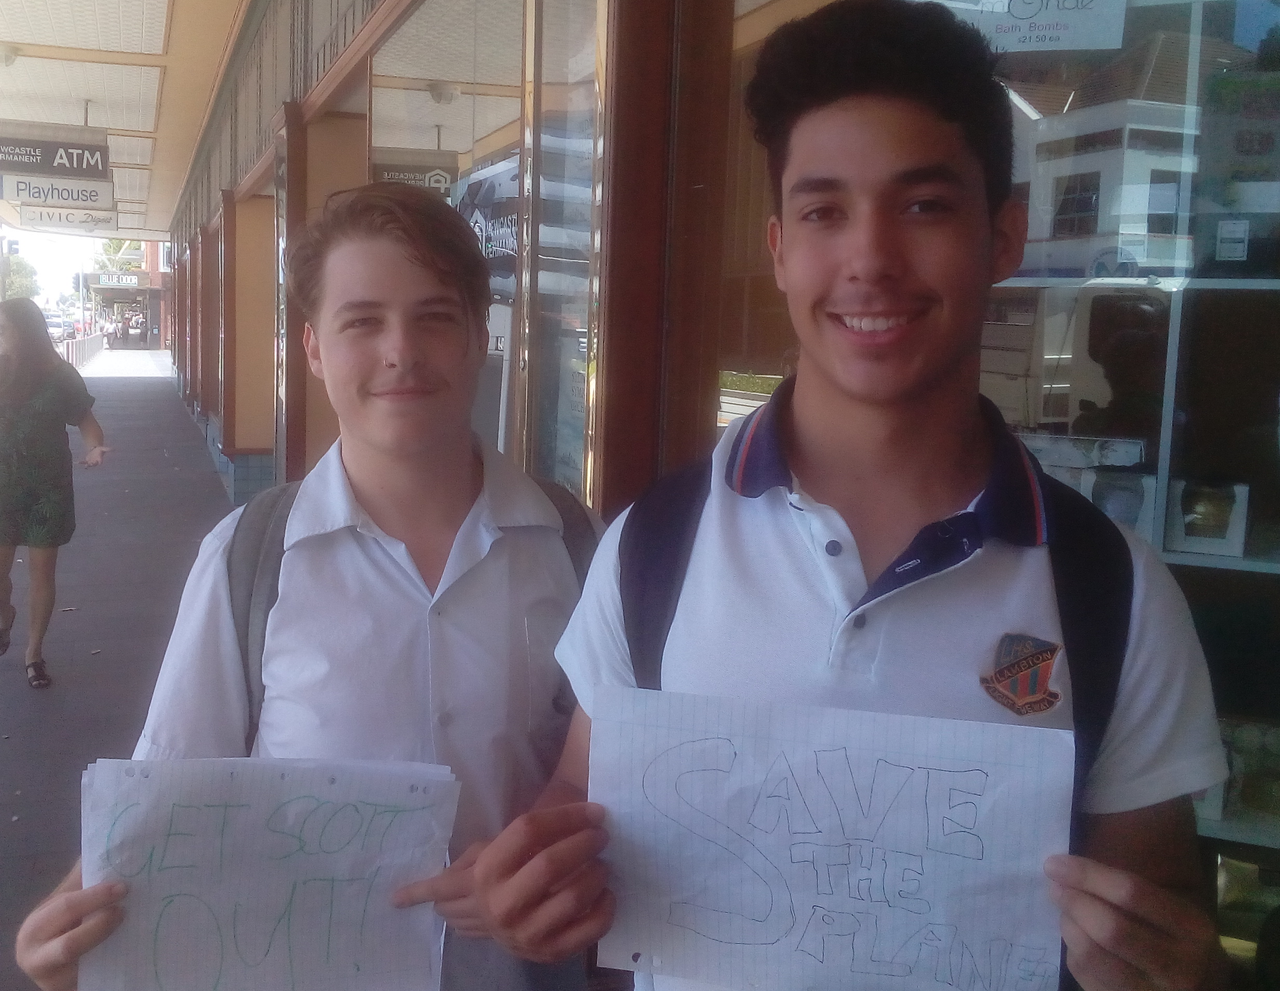 NEWCASTLE
PERMANENT
ATM
Playhouse
CIVIC Digest
BLUE DOOR
Bath Bombs
$21.50 ea
LHS
LAMBTON
THE WAY
GET SCOTT
OUT!
SAVE
THE
PLANE